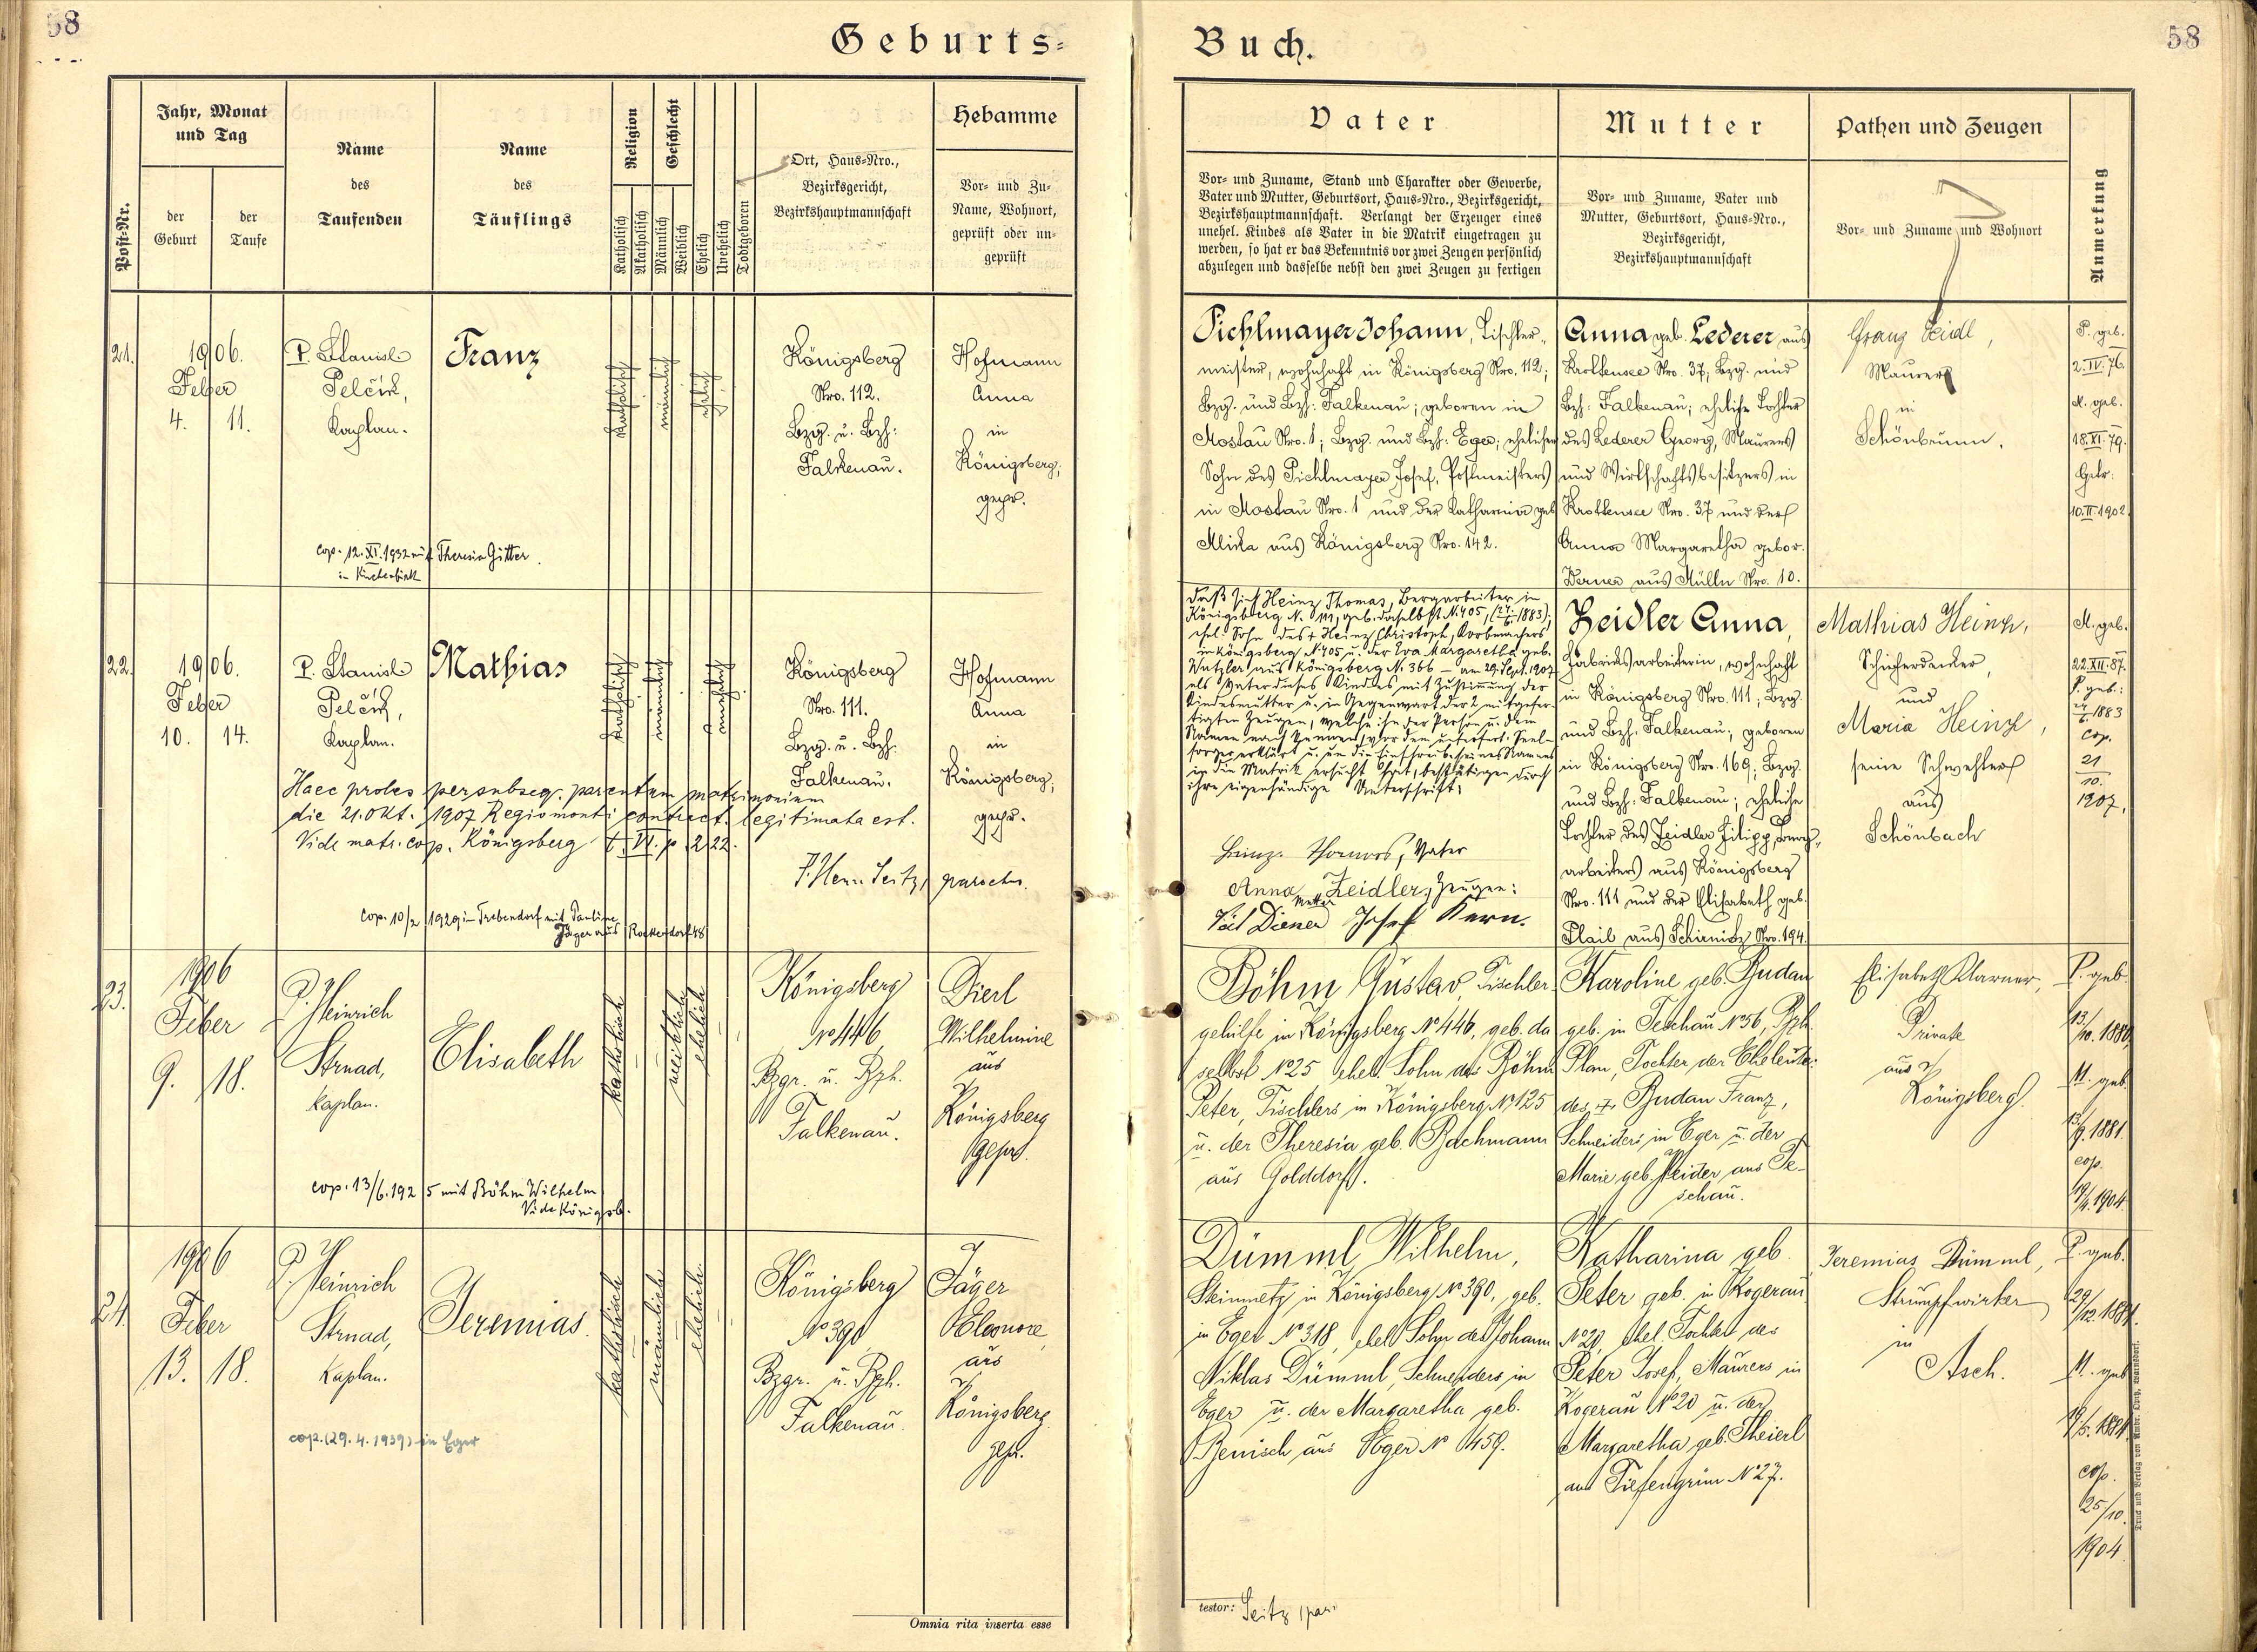 58
Geburts-
Buch.
58
Post-Nr.
Jahr, Monat
und Tag
der
Geburt
der
Taufe
Name
des
Taufenden
Name
des
Täuflings
Religion
Katholisch
Akatholisch
Geschlecht
Männlich
Weiblich
Ehelich
Unehelich
Todtgeboren
Ort, Haus-Nro.,
Bezirksgericht,
Bezirkshauptmannschaft
Hebamme
Vor- und Zu-
Name, Wohnort,
geprüft oder un-
geprüft
Vater
Vor- und Zuname, Stand und Charakter oder Gewerbe,
Vater und Mutter, Geburtsort, Haus-Nro., Bezirksgericht,
Bezirkshauptmannschaft. Verlangt der Erzeuger eines
unehel. Kindes als Vater in die Matrik eingetragen zu
werden, so hat er das Bekenntnis vor zwei Zeugen persönlich
abzulegen und dasselbe nebst den zwei Zeugen zu fertigen
Mutter
Vor- und Zuname, Vater und
Mutter, Geburtsort, Haus-Nro.,
Bezirksgericht,
Bezirkshauptmannschaft
Pathen und Zeugen
Vor- und Zuname und Wohnort
Anmerkung
21.
1906.
Feber
4. 11.
P. Stanisl
Pelčik,
Kaplan.
Franz
katholisch
männlich
ehelich
Königsberg
Nro. 112.
Bzg. u. Bzh:
Falkenau.
Hofmann
Anna
in
Königsberg;
gepr.
cop. 12. XI. 1932 mit Theresia Gitter.
in Kirchenbirk
Pichlmayer Johann, Tischler-
meister, wohnhaft in Königsberg Nro. 112;
Bzg. und Bzh: Falkenau; geboren in
Mostau Nro. 1; Bzg. und Bzh: Eger; ehelicher
Sohn des Pichlmayer Josef, Postmeisters
in Mostau Nro. 1 und der Katharina geb.
Mika aus Königsberg Nro. 142.
Anna geb. Lederer aus
Krottensee Nro. 37; Bzg. und
Bzh: Falkenau; eheliche Tochter
des Lederer Georg, Maurers
und Wirtschaftsbesitzers in
Krottensee Nro. 37 und der
Anna Margaretha gebor.
Werner aus Mülln Nro. 10.
Franz Seidl,
Maurer
in
Schönbrunn.
P. geb.
2. IV. 76.
M. geb.
18. XI. 79.
Getr.
10. II. 1902.
22.
1906.
Feber
10. 14.
P. Stanisl
Pelčik,
Kaplan.
Mathias
katholisch
männlich
unehelich
Königsberg
Nro. 111.
Bzg. u. Bzh.
Falkenau.
Hofmann
Anna
in
Königsberg;
gepr.
Haec proles per subseq. parentum matrimonium
die 21. Okt. 1907 Regiomonti contract. legitimata est.
Vide matr. cop. Königsberg t. VI. p. 222.
P. Henr. Seitz, parochus.
cop. 10/2 1929 in Trebendorf mit Pauline
Jäger aus Rockendorf 48
Daß sich Heinz Thomas, Bergarbeiter in
Königsberg N. 111, geb. daselbst N. 405, (24./6. 1883);
ehel. Sohn des † Heinz Christoph, Korbmachers
in Königsberg N. 405 u. der Eva Margaretha geb.
Watzler aus Königsberg N. 366 – am 29. Sept. 1907
als Vater dieses Kindes mit Zustimmung der
Kindesmutter u. in Gegenwart der 2 mitgefer-
tigten Zeugen, welche ihn der Person u. dem
Namen nach kennen, vor dem unterfert. Seel-
sorger erklärt u. um die Einschreib. seines Namens
in die Matrik ersucht hat, bestätigen durch
ihre eigenhändige Unterschrift:
Heinz Thomas, Vater
Anna Zeidler, Zeugen:
Mutter
Veit Diener Josef Kern.
Zeidler Anna,
Fabriksarbeiterin, wohnhaft
in Königsberg Nro. 111; Bzg.
und Bzh. Falkenau; geboren
in Königsberg Nro. 169; Bzg.
und Bzh: Falkenau; eheliche
Tochter des Zeidler Filipp, Berg-
arbeiters aus Königsberg
Nro. 111 und der Elisabeth geb.
Plail aus Schirnitz Nro. 194.
Mathias Heinz,
Schieferdecker,
und
Maria Heinz,
seine Schwester
aus
Schönbach
M. geb.
22. XII. 87.
P. geb.:
24/6. 1883
cop.
21
10.
1907.
23.
1906
Feber
9. 18.
P. Heinrich
Strnad,
Kaplan.
Elisabeth
katholisch
weiblich
ehelich
Königsberg
No 446
Bzgr. u. Bzh.
Falkenau.
Dierl
Wilhelmine
aus
Königsberg
Gepr.
cop. 13/6. 1925 mit Böhm Wilhelm
Vide Königsb.
Böhm Gustav, Tischler-
gehilfe in Königsberg No 446, geb. da
selbst No 25 ehel. Sohn des Böhm
Peter, Tischlers in Königsberg No 125
u. der Theresia geb. Bachmann
aus Golddorf.
Karoline geb. Budan
geb. in Teschau No 56, Bzh.
Plan, Tochter der Eheleute:
des † Budan Franz,
Schneiders in Eger u. der
Marie geb. Neider aus Te-
schau.
Elisabeth Klarner,
Private
aus
Königsberg.
P. geb.
13/10. 1880.
M. geb.
13/9. 1881.
cop.
19/4. 1904.
24.
1906
Feber
13. 18.
P. Heinrich
Strnad,
Kaplan.
Jeremias
katholisch
männlich
ehelich
Königsberg
No 390
Bzgr. u. Bzh.
Falkenau.
Jäger
Eleonore
aus
Königsberg
Gepr.
cop. (29. 4. 1939) in Eger
Dümml Wilhelm,
Steinmetz in Königsberg No 390, geb.
in Eger No 318, ehel. Sohn des Johann
Niklas Dümml, Schneiders in
Eger u. der Margaretha geb.
Benisch aus Eger No 459.
Katharina geb.
Peter geb. in Kogerau
No 20, ehel. Tochter des
Peter Josef, Maurers in
Kogerau No 20 u. der
Margaretha geb. Theierl
aus Tiefengrün No 27.
Jeremias Dümml,
Strumpfwirker
in
Asch.
P. geb.
29/12. 1881.
M. geb.
19/5. 1881.
cop.
25/10.
1904.
Omnia rita inserta esse
testor: Seitz, par.
Druck und Verlag von Ambr. Opitz, Warnsdorf.